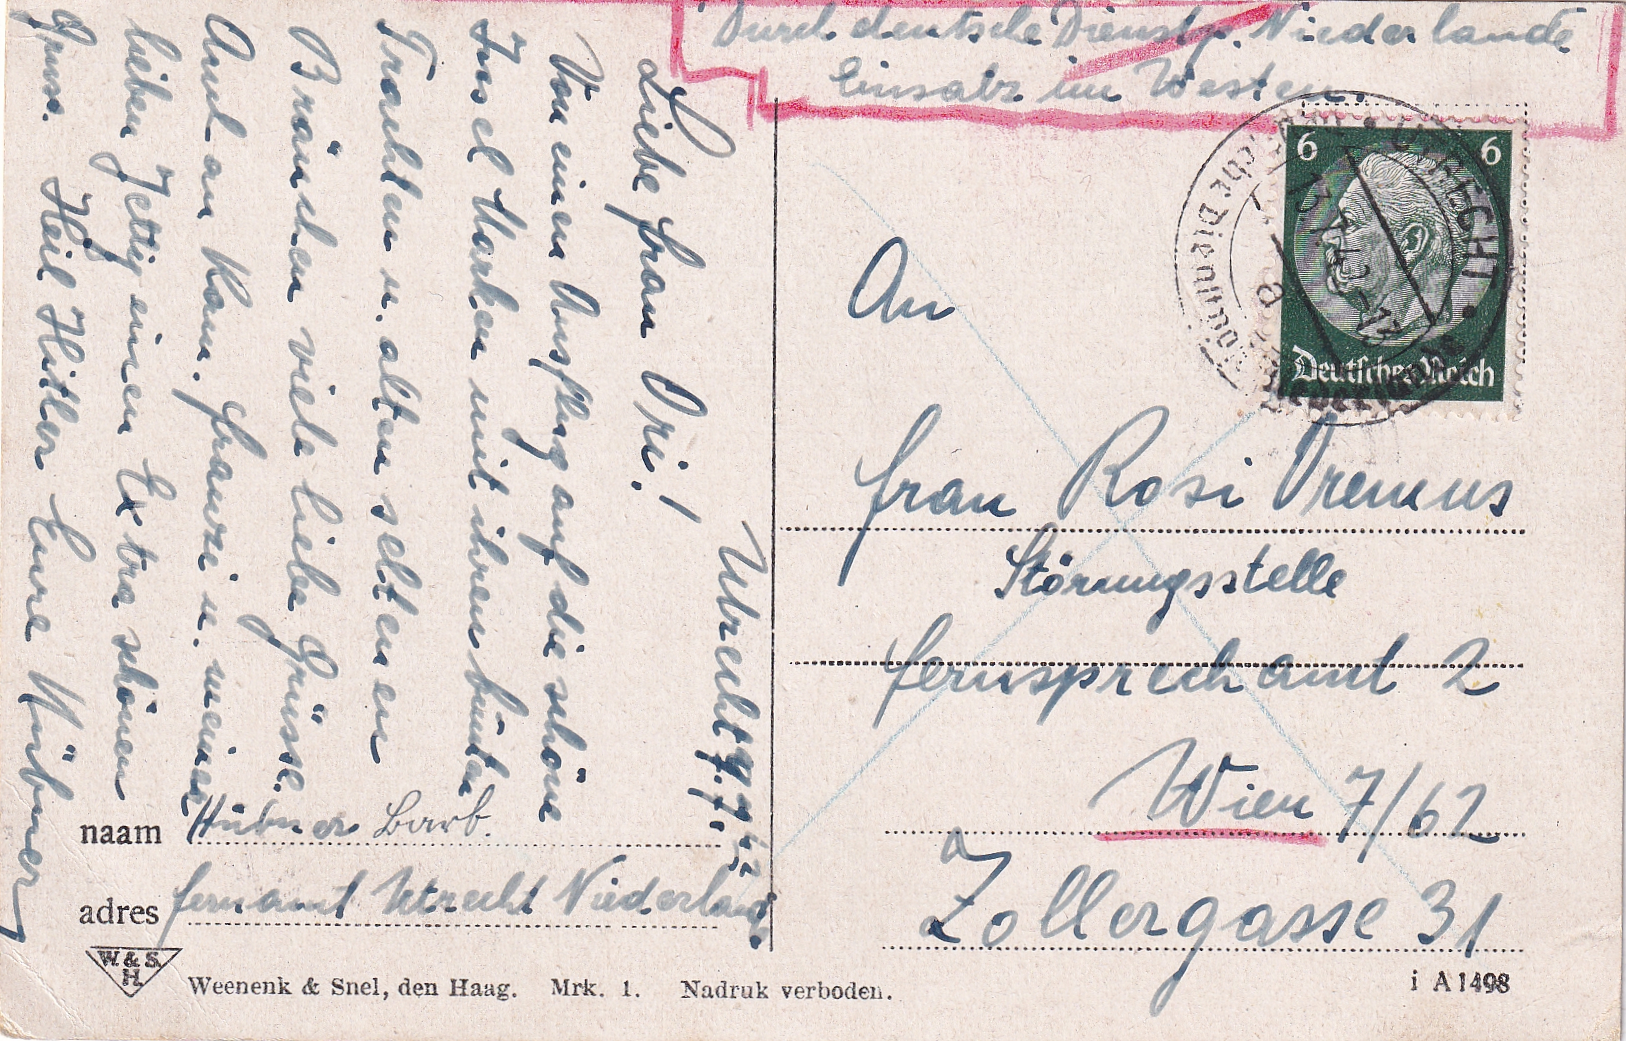 Durch deutsche Dienstp. Niederlande
Einsatz im Westen.
Utrecht 9.7.42
Liebe Frau Vri!
Von einem Ausflug auf die schöne
Insel Marken mit ihren bunten
Trachten u. alten seltenen
Bräuchen viele liebe Grüsse.
Amt an Kom. Franzi u. meiner
lieben Jettij einen Extra schönen
Gruss. Heil Hitler Eure Hübner
naam Hübner Barb.
adres Fernamt Utrecht Niederlande
W. & S.
H.
Weenenk & Snel, den Haag. Mrk. 1. Nadruk verboden.
6 6
Deutsches Reich
UTRECHT
An
Frau Rosi Vremus
Störungsstelle
Fernsprechamt 2
Wien 7/62
Zollergasse 31
i A 1498